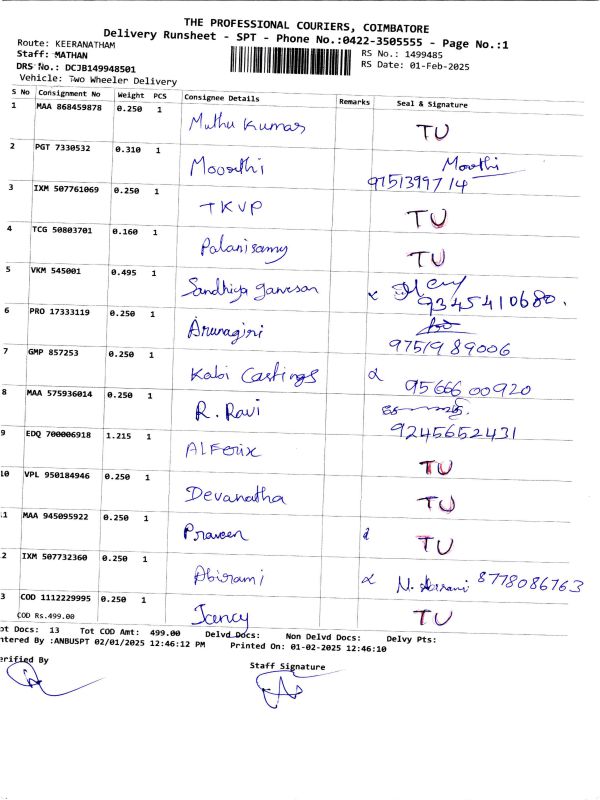 THE PROFESSIONAL COURIERS, COIMBATORE
Delivery Runsheet - SPT - Phone No.:0422-3505555 - Page No.:1
Route: KEERANATHAM
RS No.: 1499485
Staff: MATHAN
RS Date: 01-Feb-2025
DRS No.: DCJB149948501
Vehicle: Two Wheeler Delivery
S No Consignment No Weight PCS Consignee Details Remarks Seal & Signature
1 MAA 868459878 0.250 1 Muthu Kumar TU
2 PGT 7330532 0.310 1 Moorthi Moorthi
9751399714
3 IXM 507761069 0.250 1 TKVP TU
4 TCG 50803701 0.160 1 Palanisamy TU
5 VKM 545001 0.495 1 Sandhiya ganesan
9345410680.
6 PRO 17333119 0.250 1 Arunagiri
9751989006
7 GMP 857253 0.250 1 Kabi Castings 9566600920
8 MAA 575936014 0.250 1 R. Ravi
9245652431
9 EDQ 700006918 1.215 1 ALFerix TU
10 VPL 950184946 0.250 1 Devanatha TU
.1 MAA 945095922 0.250 1 Praveen TU
.2 IXM 507732360 0.250 1 Abirami 8778086763
3 COD 1112229995 0.250 1 Jency TU
COD Rs.499.00
ot Docs: 13 Tot COD Amt: 499.00 Delvd Docs: Non Delvd Docs: Delvy Pts:
ntered By :ANBUSPT 02/01/2025 12:46:12 PM Printed On: 01-02-2025 12:46:10
erified By
Staff Signature